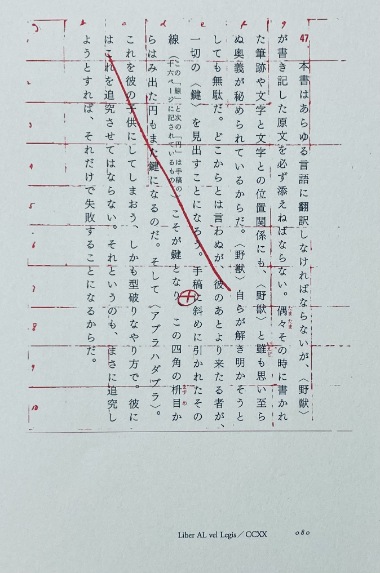 a b c d e f g
47 本書はあらゆる言語に翻訳しなければならないが、〈野獣〉
が書き記した原文を必ず添えねばならない。偶々その時に書かれ
たまたま
た筆跡や文字と文字との位置関係にも、〈野獣〉と雖も思い至ら
いえど
ぬ奥義が秘められているからだ。〈野獣〉自らが解き明かそうと
しても無駄だ。どこからとは言わぬが、彼のあとより来たる者が、
一切の〈鍵〉を見出すことになろう。手稿に斜めに引かれたその
線〈この「線」と次の「円」は手稿の
十六ページに記されているもの〉こそが鍵となり、この四角の枡目か
ますめ
らはみ出た円もまた鍵になるのだ。そして〈アブラハダブラ〉。
これを彼の子供にしてしまおう、しかも型破りなやり方で。彼に
はこれを追究させてはならない。それというのも、まさに追究し
ようとすれば、それだけで失敗することになるからだ。
1
2
3
4
5
6
7
8
9
10
Liber AL vel Legis／CCXX
080